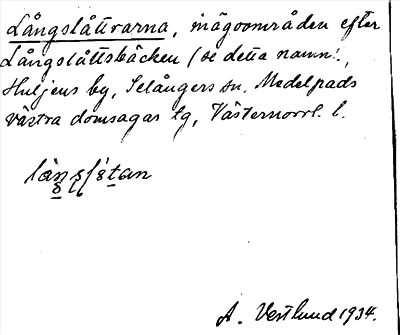 Långslåttvarna, inägoområden efter
Långslåttsbäcken (se detta namn!,
Huljens by, Selångers sn. Medelpads
västra domsagas tg, Västernorrl. l.
A. Vestlund 1934.